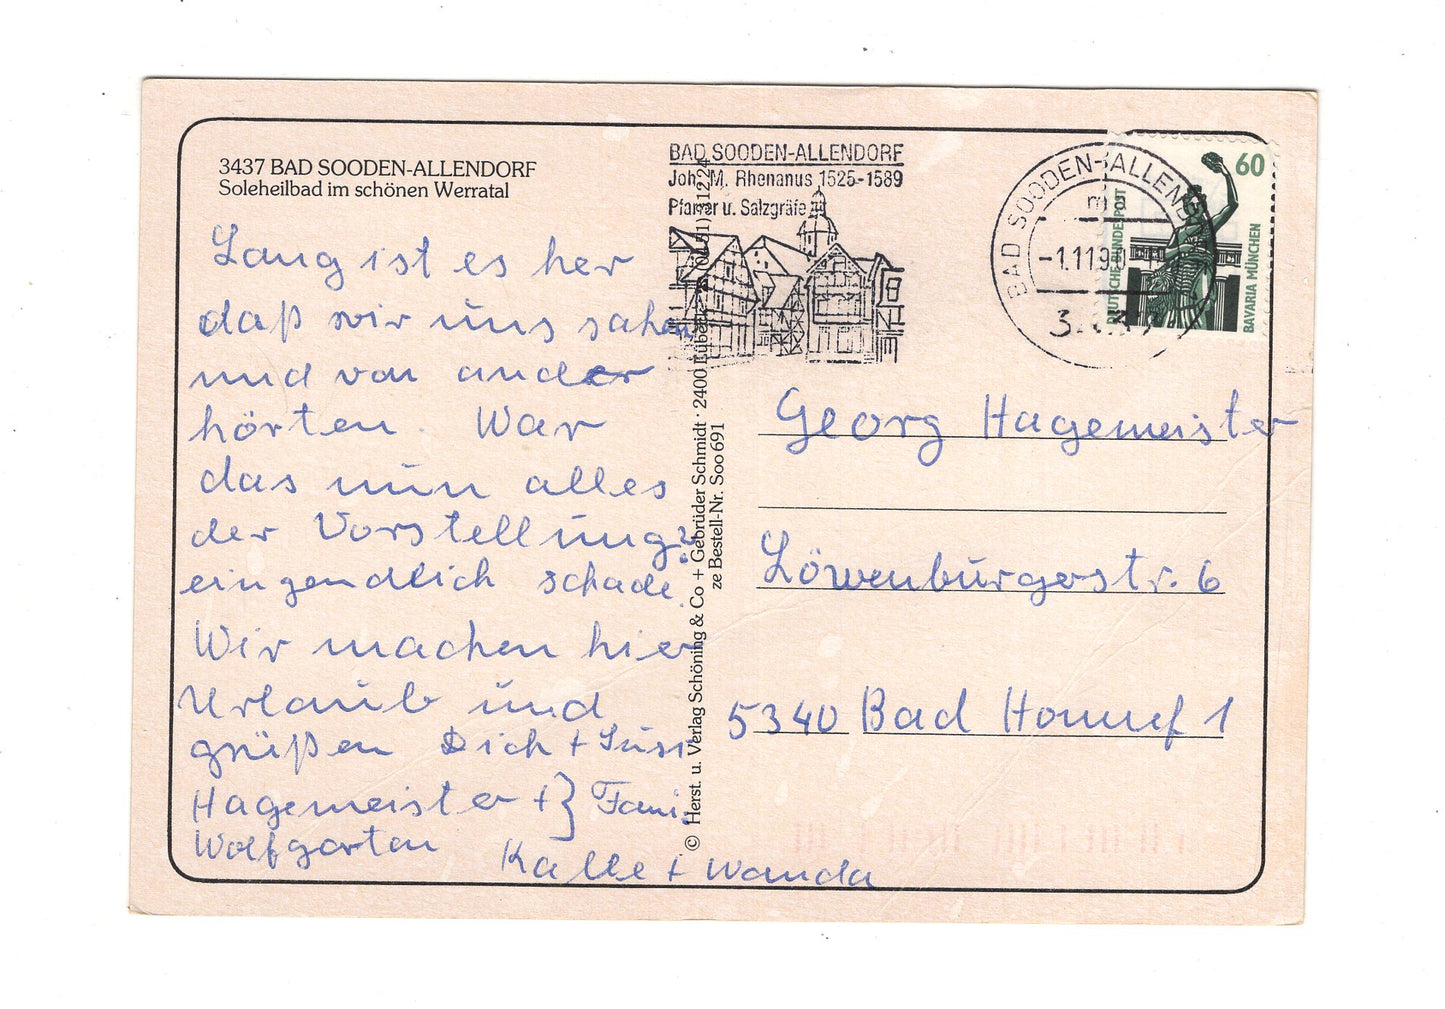 3437 BAD SOODEN-ALLENDORF
Soleheilbad im schönen Werratal
Lang ist es her
daß wir uns sahen
und von ander
hörten. War
das nun alles
der Vorstellung?
eingendlich schade.
Wir machen hier
Urlaub und
grüßen Dich + Susi
Hagemeister + } Fami.
Wolfgarten
Kalle + Wanda
© Herst. u. Verlag Schöning & Co + Gebrüder Schmidt · 2400 Lübeck
ze Bestell-Nr. Soo 691
BAD SOODEN-ALLENDORF
Joh. M. Rhenanus 1525-1589
Pfarrer u. Salzgräfe
BAD SOODEN-ALLEND
-1.11.90
60
DEUTSCHE BUNDESPOST
BAVARIA MÜNCHEN
Georg Hagemeister
Löwenburgerstr. 6
5340 Bad Honnef 1